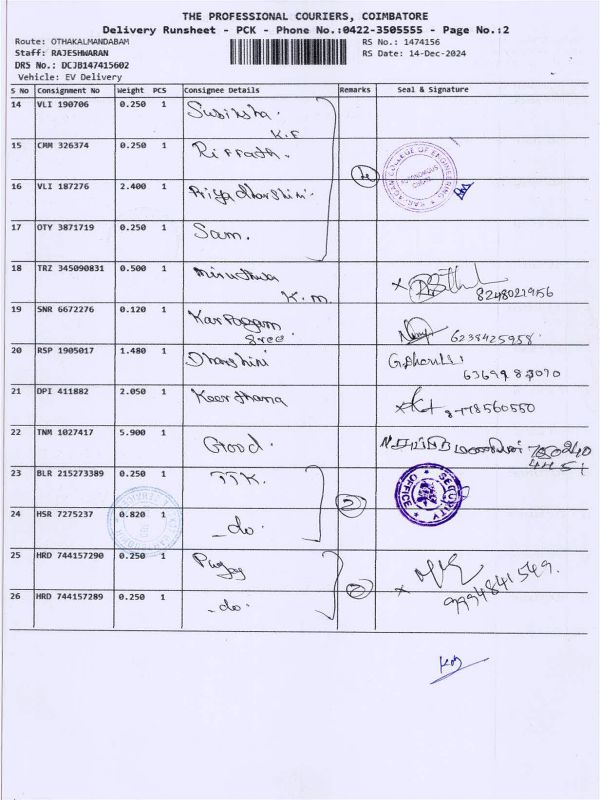 THE PROFESSIONAL COURIERS, COIMBATORE
Delivery Runsheet - PCK - Phone No.:0422-3505555 - Page No.:2
Route: OTHAKALMANDABAM
RS No.: 1474156
Staff: RAJESHWARAN
RS Date: 14-Dec-2024
DRS No.: DCJB147415602
Vehicle: EV Delivery
S No Consignment No Weight PCS Consignee Details Remarks Seal & Signature
14 VLI 190706 0.250 1 Subiksha K.F
15 CMM 326374 0.250 1 Riffath.
16 VLI 187276 2.400 1 Priyadharshini.
17 OTY 3871719 0.250 1 Sam.
COLLEGE OF ENGINEERING
AUTONOMOUS
18 TRZ 345090831 0.500 1 Miruthula K.M. 8248021956
19 SNR 6672276 0.120 1 Karpagam Sree 6238425958
20 RSP 1905017 1.480 1 Dharshini
21 DPI 411882 2.050 1 Keerthana
22 TNM 1027417 5.900 1 Good.
23 BLR 215273389 0.250 1 TTK. 2
SECURITY OFFICE
24 HSR 7275237 0.820 1 -do-
25 HRD 744157290 0.250 1 2 9994841549.
26 HRD 744157289 0.250 1 -do-